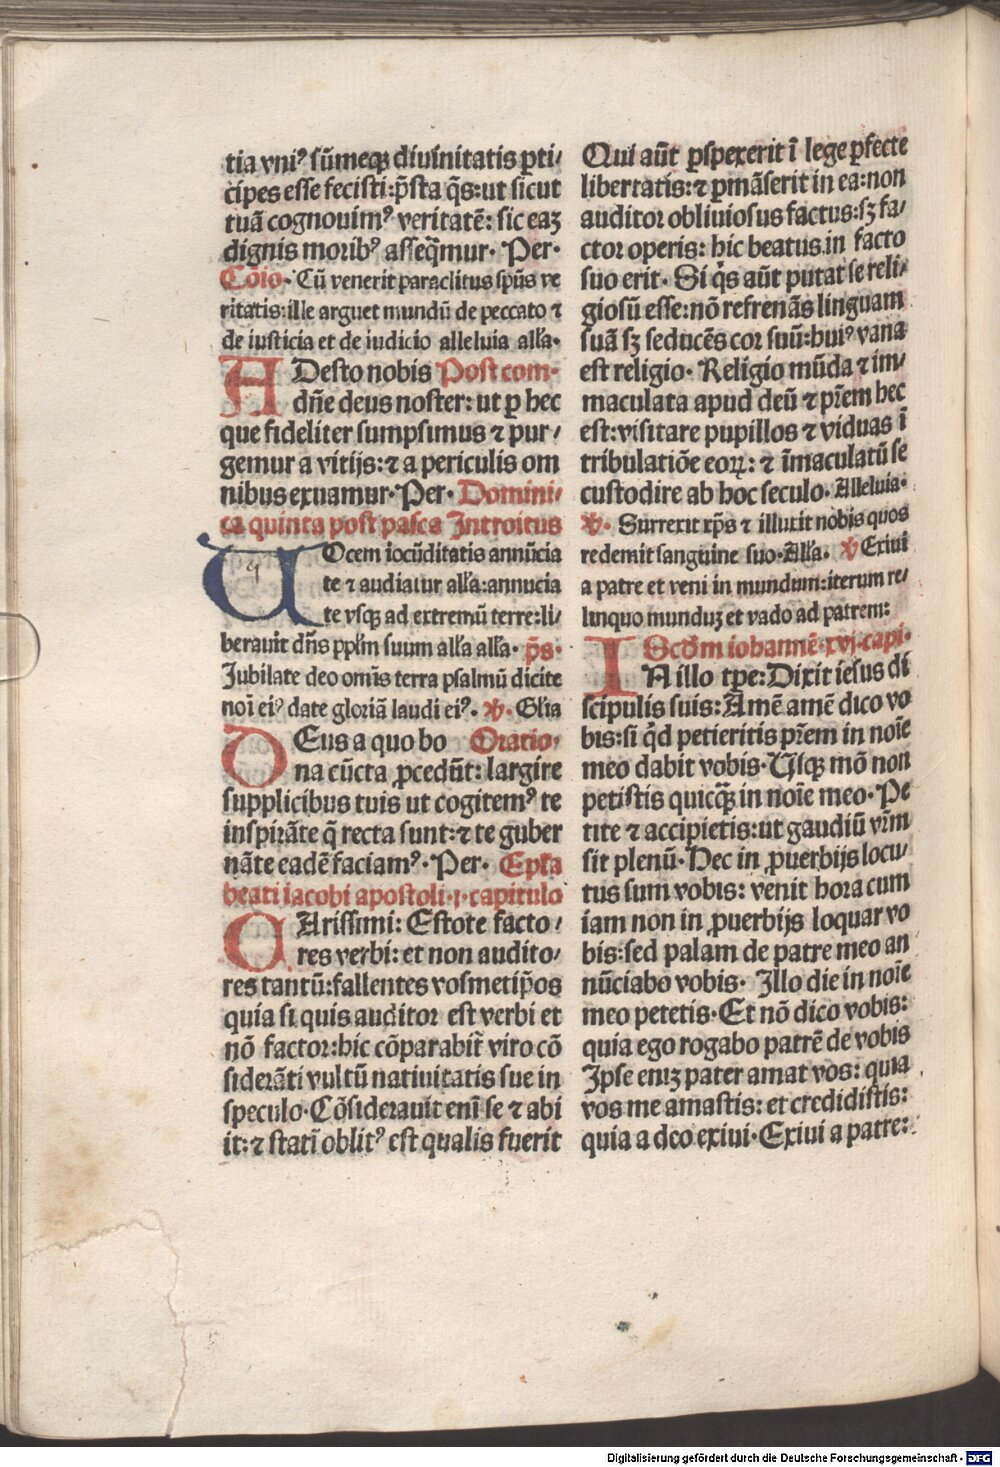 tia vniꝰ sūmeqꝫ diuinitatis ꝑti/
cipes esse fecisti: p̄sta q̄s: ut sicut
tuā cognouimꝰ veritatē: sic eaꝫ
dignis moribꝰ asseq̄mur. Per.
Cōio. Cū venerit paraclitus sp̄us ve
ritatis: ille arguet mundū de peccato ⁊
de iusticia et de iudicio alleluia alła.
ADesto nobis Post com.
dn̄e deus noster: ut ꝑ hec
que fideliter sumpsimus ⁊ pur/
gemur a vitijs: ⁊ a periculis om
nibus exuamur. Per. Domini/
ca quinta post pasca Introitus
UOcem iocūditatis annūcia
te ⁊ audiatur alła: annucia
te vsqꝫ ad extremū terre: li/
berauit dn̄s ppłm suum alła alła. ps̄.
Jubilate deo omīs terra psalmū dicite
noī eiꝰ date gloriā laudi eiꝰ. ℣. Głia
DEus a quo bo Oratio.
na cūcta ꝓcedūt: largire
supplicibus tuis ut cogitemꝰ te
inspirāte q̄ recta sunt: ⁊ te guber
nāte eadē faciamꝰ. Per. Epła
beati iacobi apostoli .j. capitulo
CArissimi: Estote facto/
res verbi: et non audito/
res tantū: fallentes vosmetip̄os
quia si quis auditor est verbi et
nō factor: hic cōparabit̄ viro cō
siderāti vultū natiuitatis sue in
speculo. Cōsiderauit enī se ⁊ abi
it: ⁊ statī oblitꝰ est qualis fuerit
Qui aūt ꝑspexerit ī lege ꝑfecte
libertatis: ⁊ ꝑmāserit in ea: non
auditor obliuiosus factus: sꝫ fa/
ctor operis: hic beatus in facto
suo erit. Si q̇s aūt putat se reli/
giosū esse: nō refrenās linguam
suā sꝫ seducēs cor suū: huiꝰ vana
est religio. Religio mūda ⁊ im/
maculata apud deū ⁊ pr̄em hec
est: visitare pupillos ⁊ viduas ī
tribulatiōe eoꝝ: ⁊ īmaculatū se
custodire ab hoc seculo. Alleluia.
℣. Surrexit xp̄s ⁊ illuxit nobis quos
redemit sanguine suo. Alła. ℣ Exiui
a patre et veni in mundum: iterum re/
linquo munduꝫ et vado ad patrem:
Scd̄m iohannē. xvj. capi.
IN illo tp̄e: Dixit iesus di
scipulis suis: Amē amē dico vo
bis: si q̇d petieritis pr̄em in noīe
meo dabit vobis. Usqꝫ mō non
petistis quicq̄ꝫ in noīe meo. Pe
tite ⁊ accipietis: ut gaudiū vr̄m
sit plenū. Hec in ꝓuerbijs locu/
tus sum vobis: venit hora cum
iam non in ꝓuerbijs loquar vo
bis: sed palam de patre meo an
nūciabo vobis. Illo die in noīe
meo petetis. Et nō dico vobis:
quia ego rogabo patrē de vobis
Ipse eniꝫ pater amat vos: quia
vos me amastis: et credidistis:
quia a deo exiui. Exiui a patre:
Digitalisierung gefördert durch die Deutsche Forschungsgemeinschaft - DFG